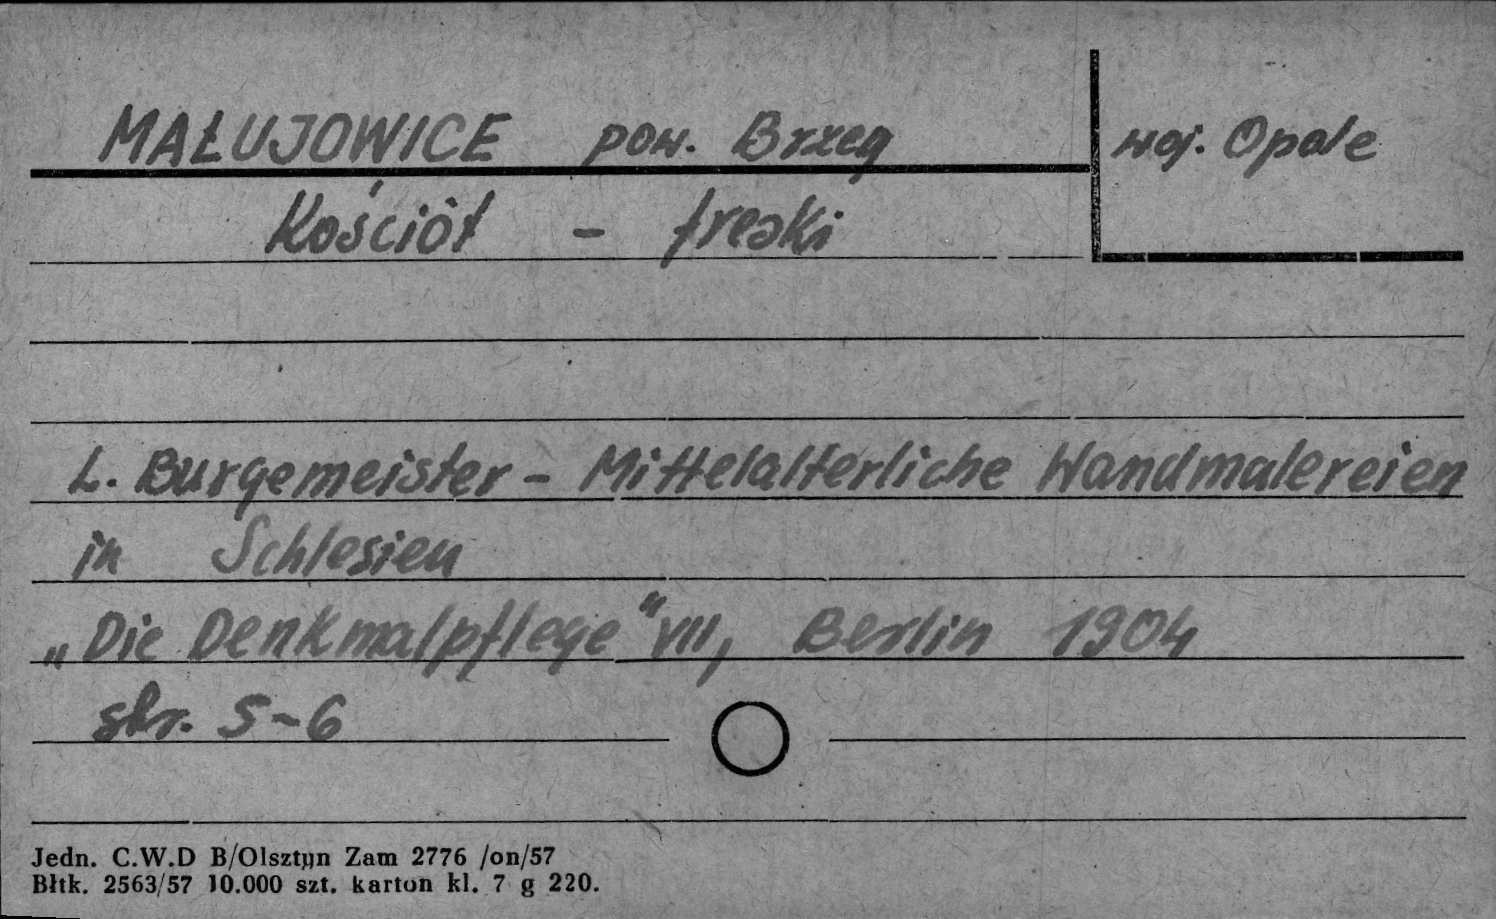 MAŁUJOWICE pow. Brzeg woj. Opole
Kościół - freski
L. Burgemeister - Mittelalterliche Wandmalereien
in Schlesien
„Die Denkmalpflege" VII, Berlin 1904
str. 5-6
Jedn. C.W.D B/Olsztyn Zam 2776 /on/57
Błtk. 2563/57 10.000 szt. karton kl. 7 g 220.